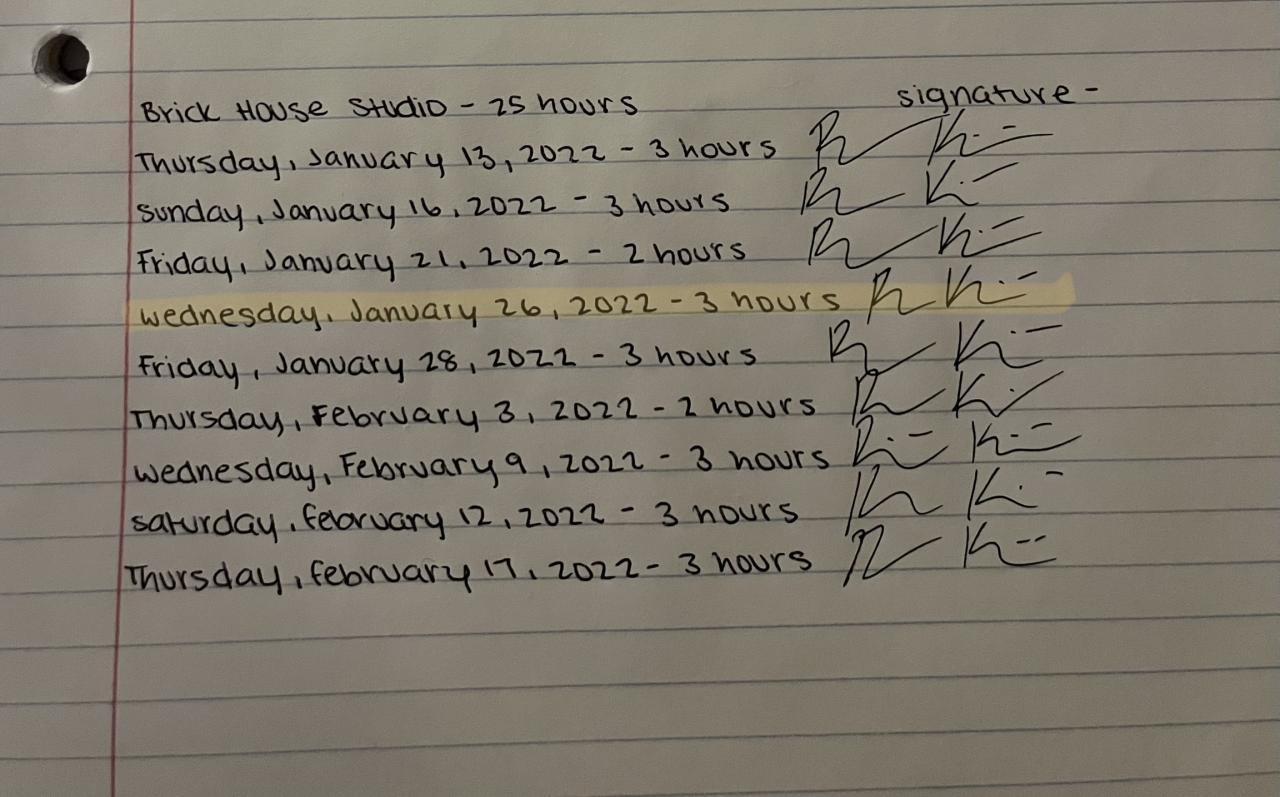 Brick House Studio - 25 hours signature -
Thursday, January 13, 2022 - 3 hours
Sunday, January 16, 2022 - 3 hours
Friday, January 21, 2022 - 2 hours
Wednesday, January 26, 2022 - 3 hours
Friday, January 28, 2022 - 3 hours
Thursday, February 3, 2022 - 2 hours
Wednesday, February 9, 2022 - 3 hours
Saturday, February 12, 2022 - 3 hours
Thursday, February 17, 2022 - 3 hours